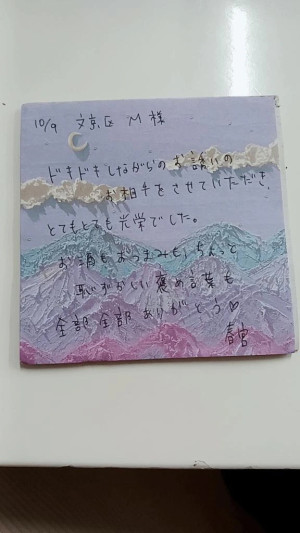 10/9 文京区 M 様
ドキドキしながらのお誘いの
お相手をさせていただき、
とてもとても光栄でした。
お酒もおつまみも、ちょっと
恥ずかしい褒め言葉も
全部全部ありがとう♡
春宮